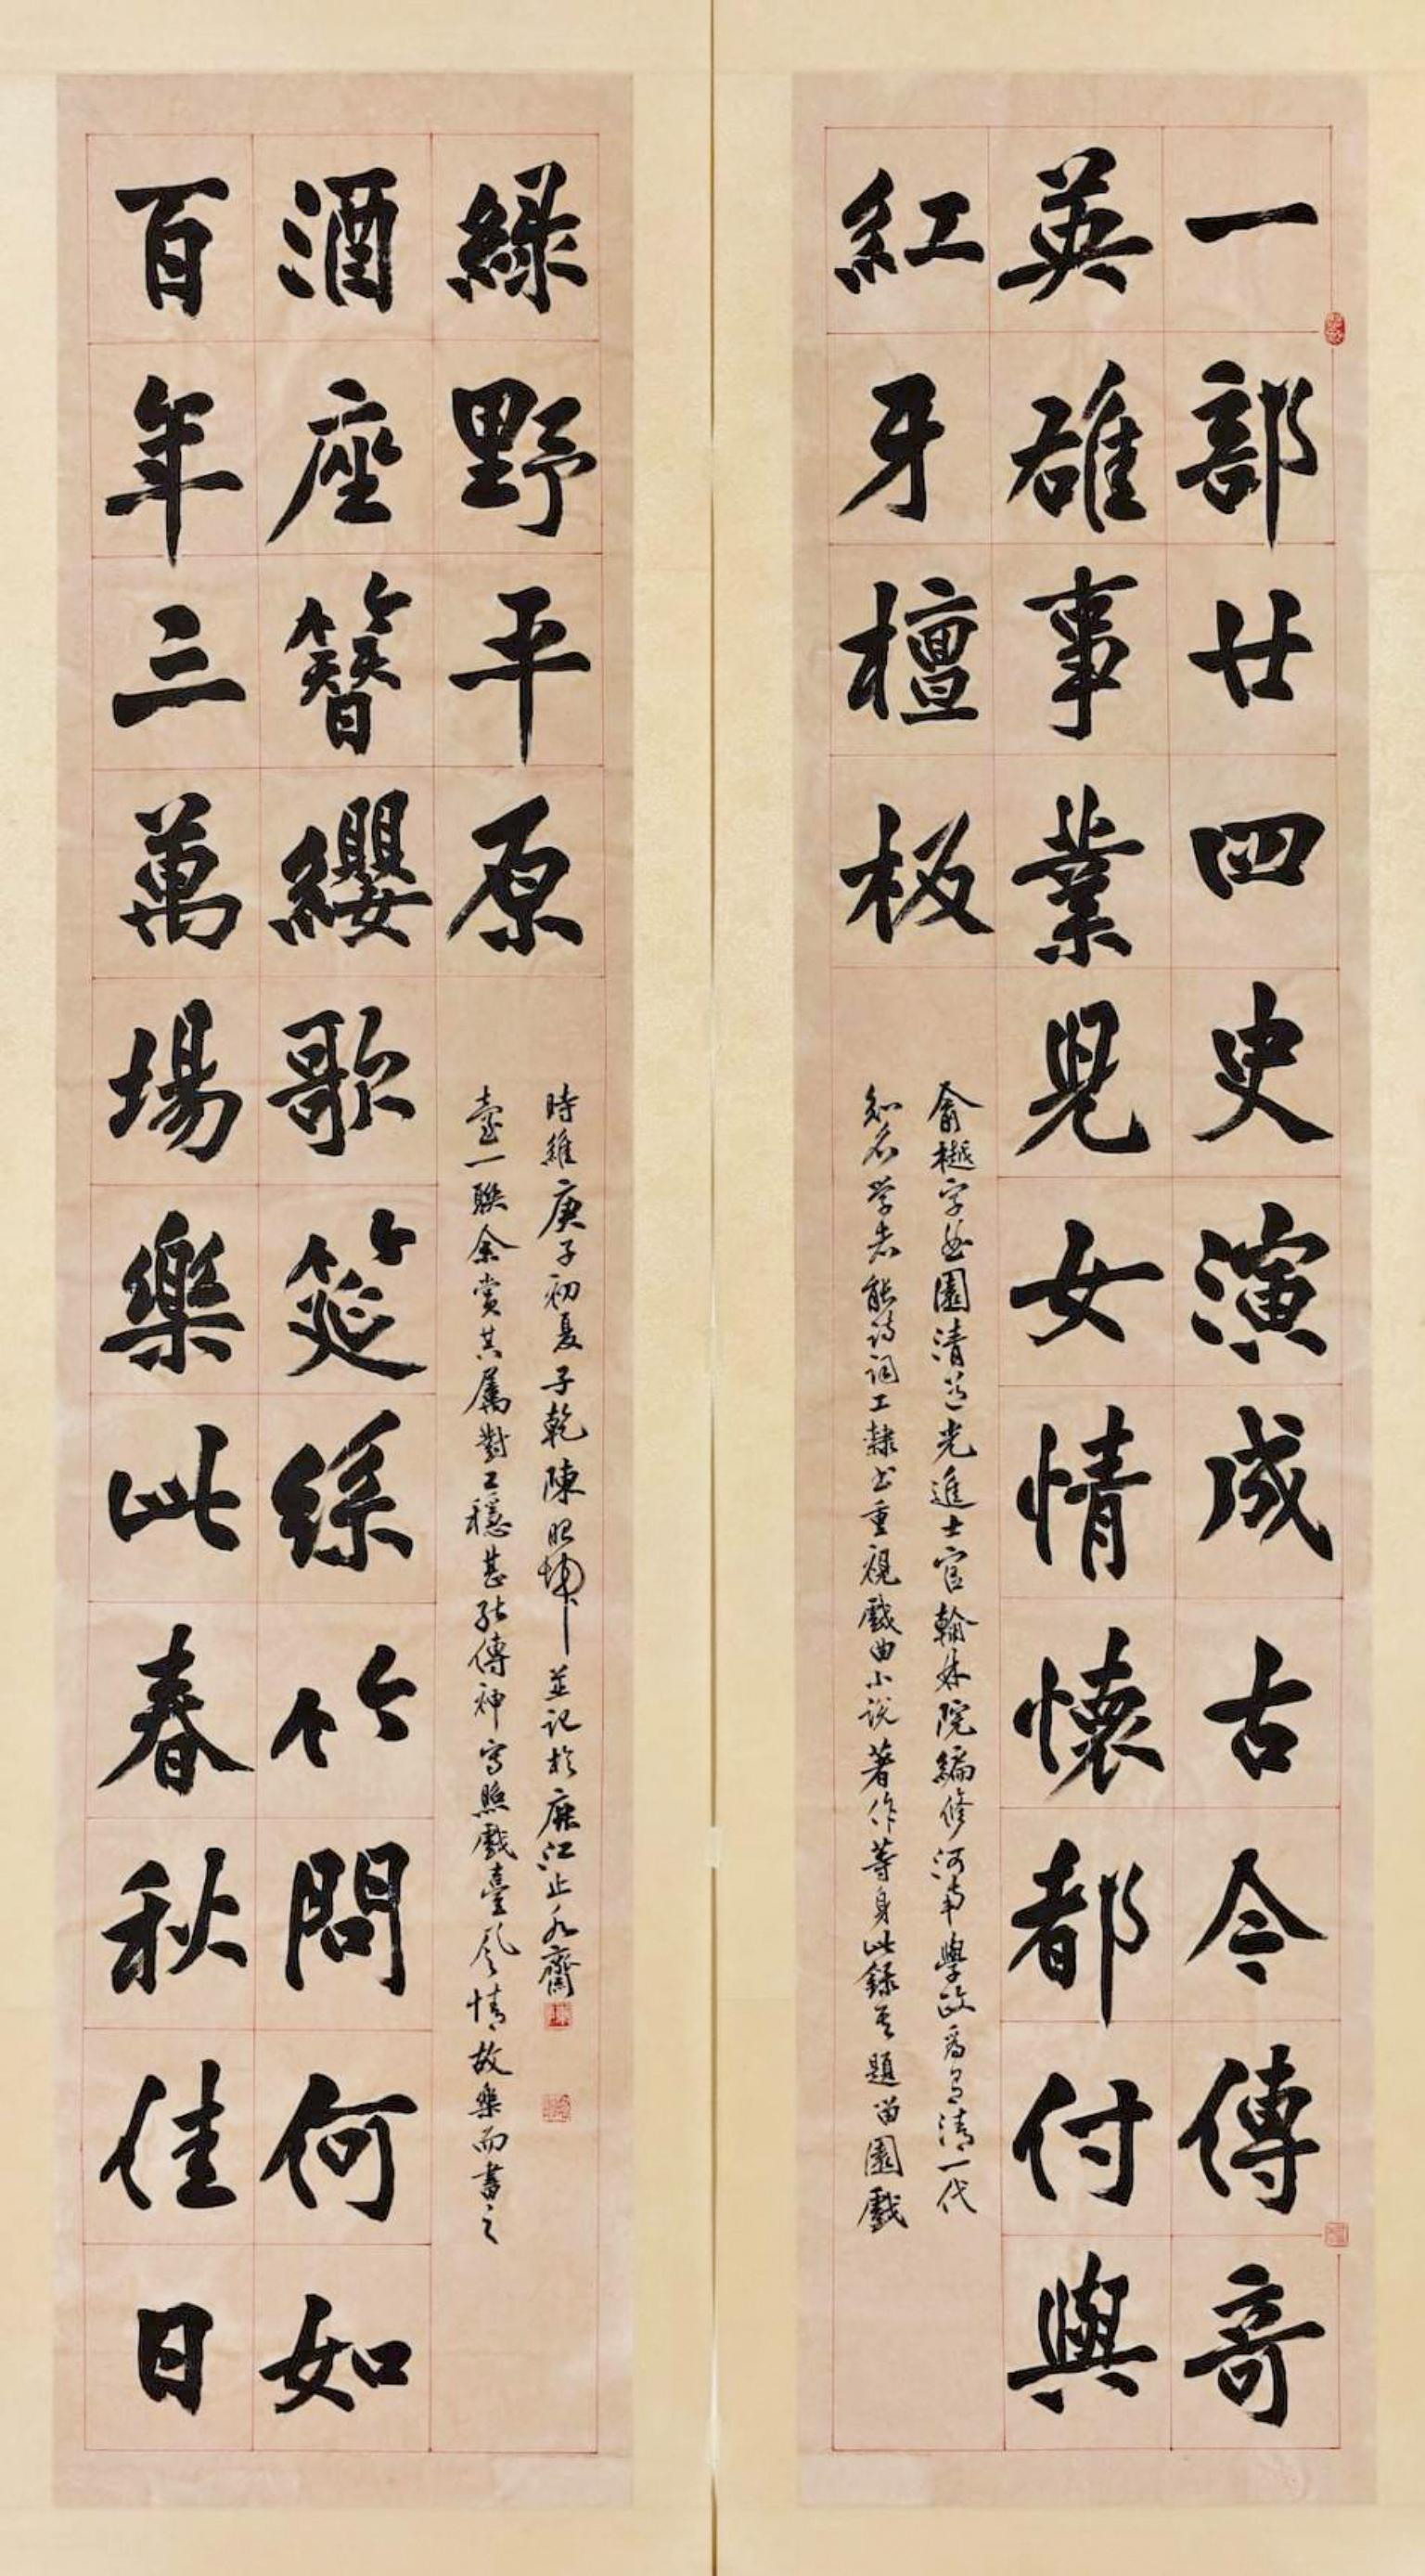 一部廿四史演成古今傳奇
英雄事業兒女情懷都付與
紅牙檀板
俞樾字曲園清道光進士官翰林院編修河南學政爲有清一代
知名学者能詩詞工隸书重視戲曲小説著作等身此録其題留園戲
百年三萬場樂此春秋佳日
酒座簪纓歌筵絲竹問何如
綠野平原
臺一聯余賞其屬對工穩甚能傳神寫照戲臺風情故樂而書之
時維庚子初夏子乾陳昭坤並記於廉江止水齋